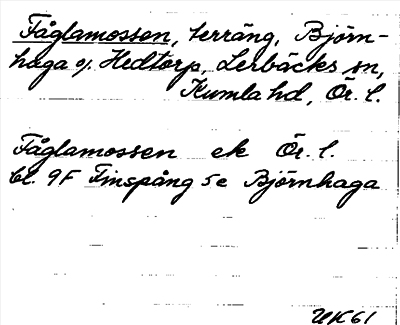 Fåglamossen, terräng, Björn-
haga o. Hedtorp, Lerbäcks sn,
Kumla hd, Ör. l.
Fåglamossen ek Ör. l.
bl. 9F Finspång 5e Björnhaga
UK61